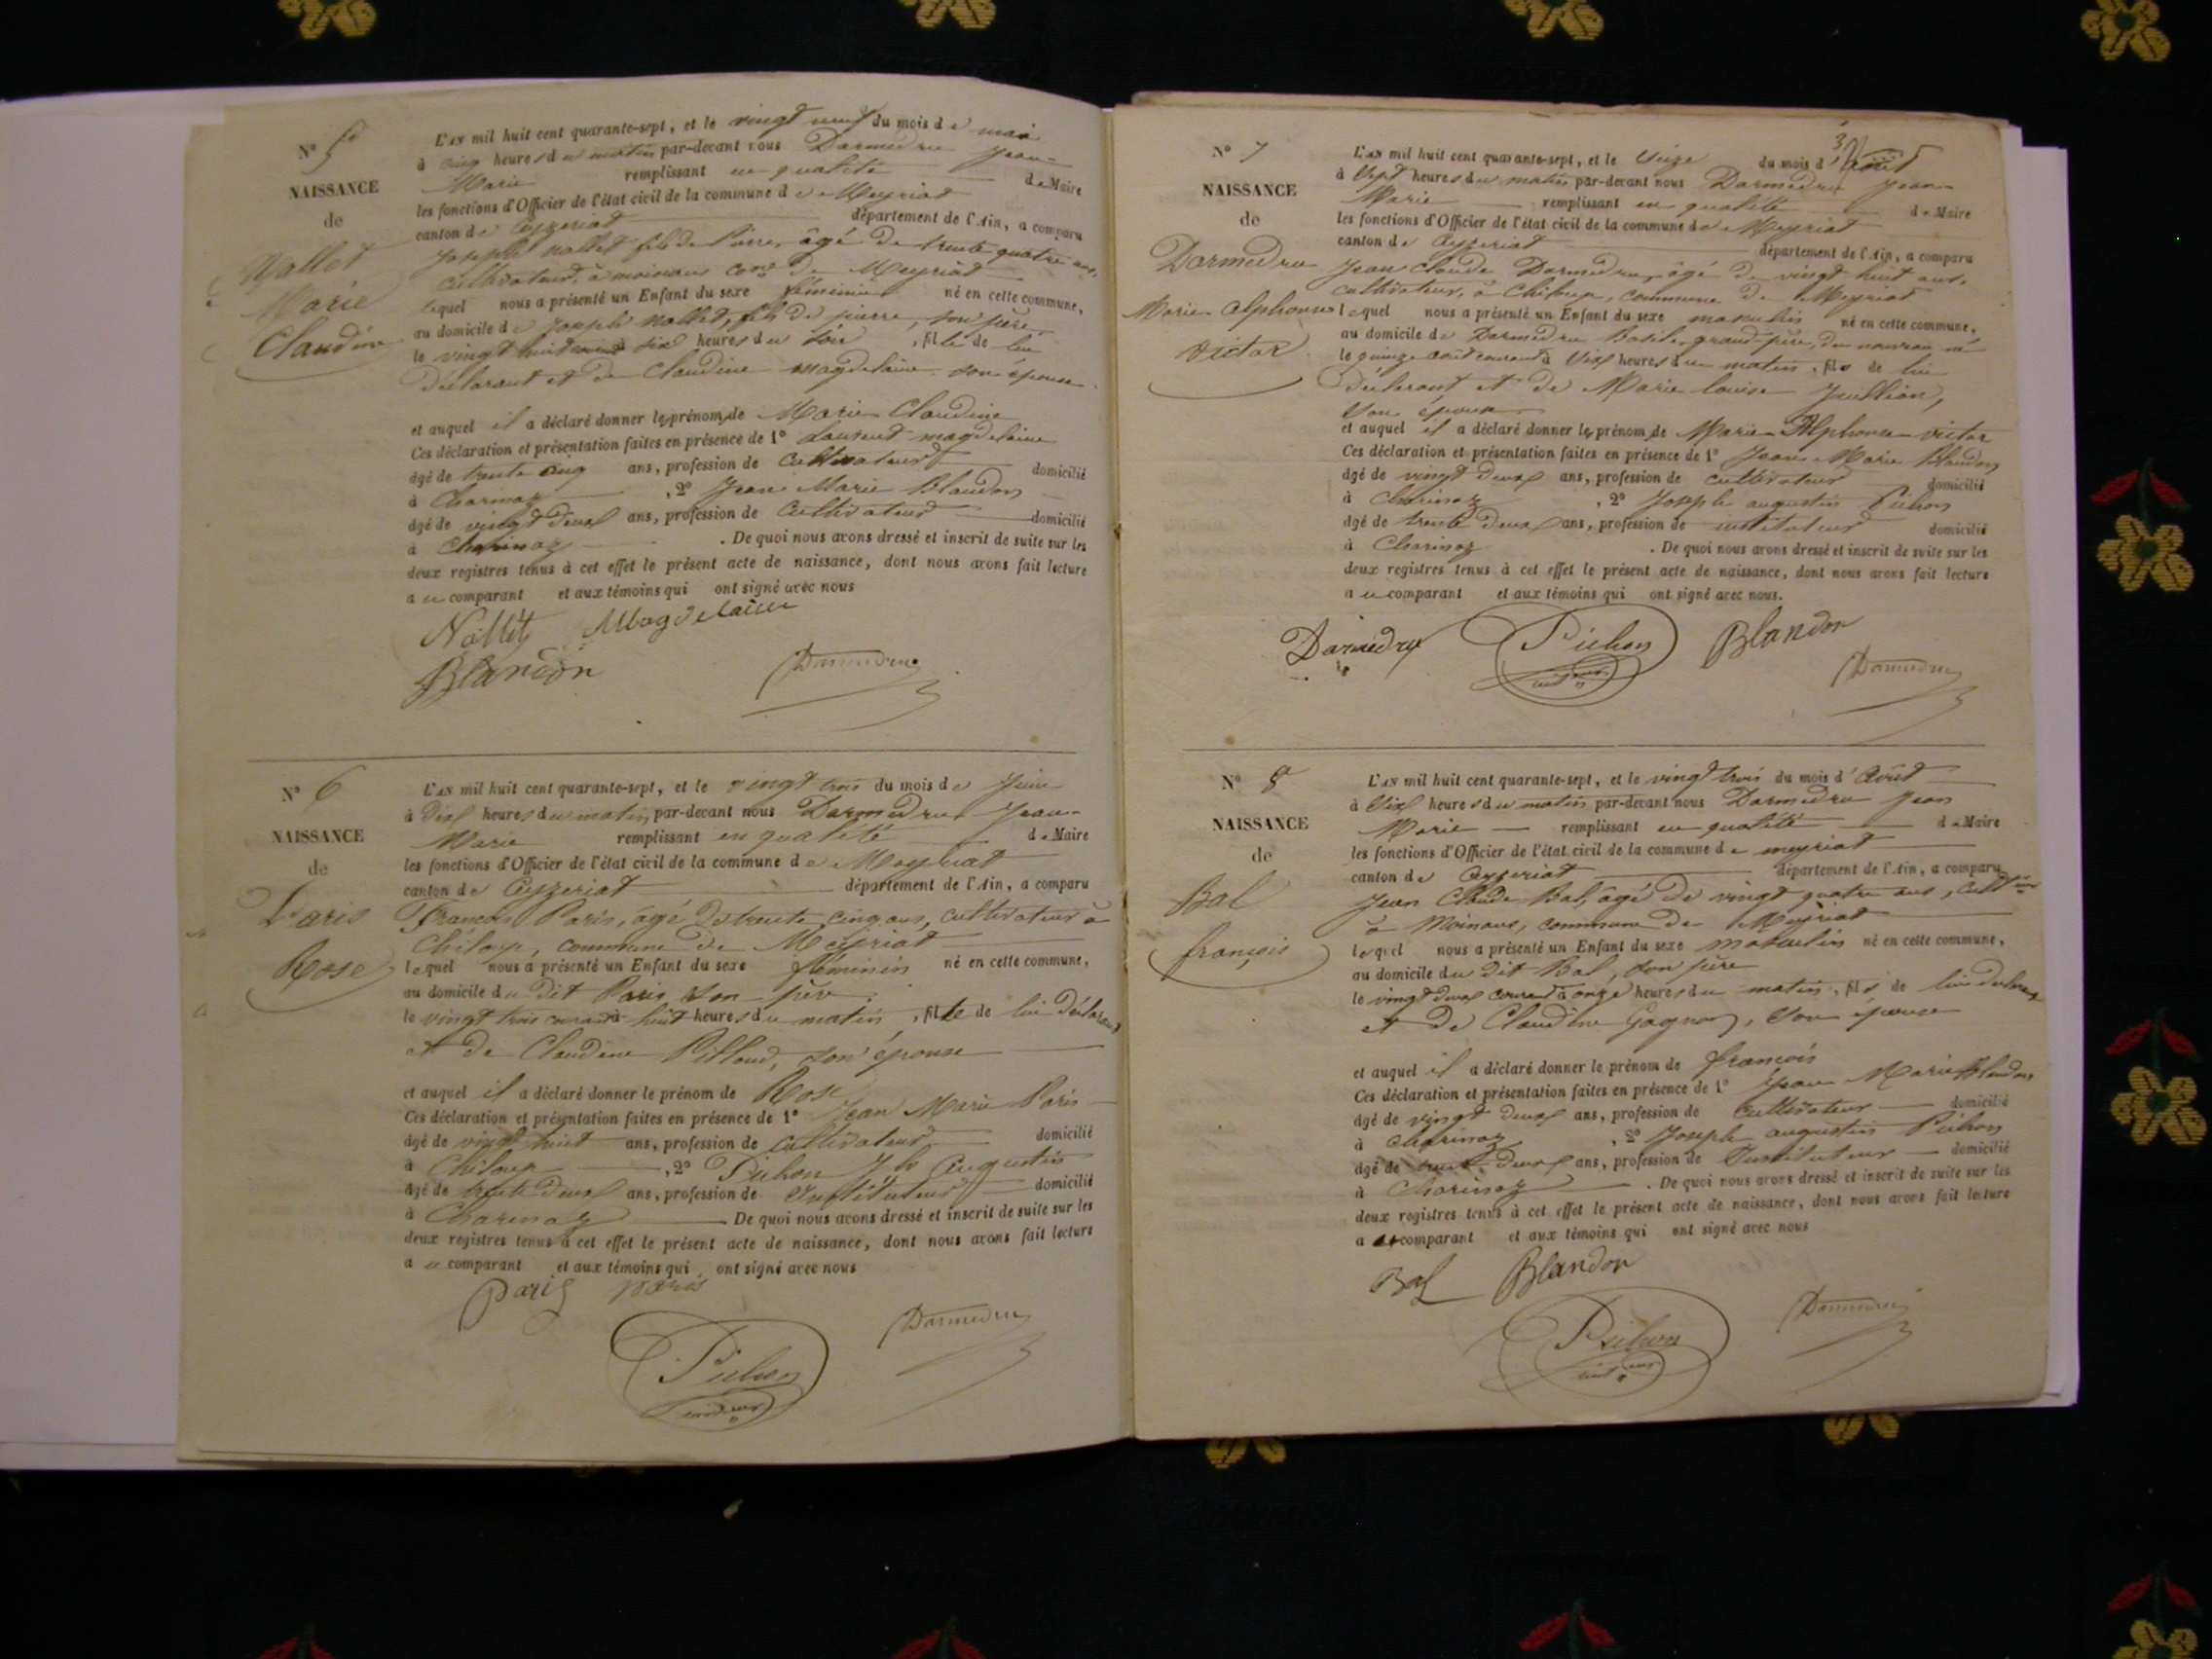 N° 5
NAISSANCE
de
Nallet
Marie
Claudine
L'an mil huit cent quarante-sept, et le vingt neuf du mois de mai
à cinq heures du matin par-devant nous Darmedru Jean-
Marie remplissant en qualité de Maire
les fonctions d'Officier de l'état civil de la commune de Meyriat
canton de Ceyzeriat département de l'Ain, a comparu
Joseph Nallet fils de Pierre, âgé de trente quatre ans,
cultivateur, à moinans com.ne de Meyriat
lequel nous a présenté un Enfant du sexe féminin né en cette commune,
au domicile de Joseph Nallet, fils de pierre, son père
le vingt huit courant à six heures du soir, fille de lui
déclarant et de Claudine magdelaine son épouse
et auquel il a déclaré donner les prénoms de Marie Claudine
Ces déclaration et présentation faites en présence de 1° Laurent magdelaine
âgé de trente cinq ans, profession de Cultivateur domicilié
à Charinaz, 2° Jean Marie Blandon
âgé de vingt deux ans, profession de Cultivateur domicilié
à Charinaz. De quoi nous avons dressé et inscrit de suite sur les
deux registres tenus à cet effet le présent acte de naissance, dont nous avons fait lecture
au comparant et aux témoins qui ont signé avec nous
Nallet Magdelaine
Blandon Darmedru
N° 6
NAISSANCE
de
Paris
Rose
L'an mil huit cent quarante-sept, et le vingt trois du mois de Juin
à dix heures du matin par-devant nous Darmedru Jean-
Marie remplissant en qualité de Maire
les fonctions d'Officier de l'état civil de la commune de Meyriat
canton de Ceyzeriat département de l'Ain, a comparu
François Paris, âgé de trente cinq ans, cultivateur à
Chiloup, commune de Meyriat
lequel nous a présenté un Enfant du sexe féminin né en cette commune,
au domicile du dit Paris son père
le vingt trois courant à huit heures du matin, fille de lui déclarant
et de Claudine Pilloud, son épouse
et auquel il a déclaré donner le prénom de Rose
Ces déclaration et présentation faites en présence de 1° Jean Marie Paris
âgé de vingt huit ans, profession de cultivateur domicilié
à Chiloup, 2° Pichon Jh Augustin
âgé de trente deux ans, profession de Instituteur domicilié
à Charinaz De quoi nous avons dressé et inscrit de suite sur les
deux registres tenus à cet effet le présent acte de naissance, dont nous avons fait lecture
au comparant et aux témoins qui ont signé avec nous
Paris Paris
Pichon Darmedru
N° 7
NAISSANCE
de
Darmedru
Marie Alphonse
victor
L'an mil huit cent quarante-sept, et le Seize du mois d'août
à Sept heures du matin par-devant nous Darmedru Jean-
Marie remplissant en qualité de Maire
les fonctions d'Officier de l'état civil de la commune de Meyriat
canton de Ceyzeriat département de l'Ain, a comparu
Jean Claude Darmedru, âgé de vingt huit ans,
cultivateur, à Chiloup, commune de Meyriat
lequel nous a présenté un Enfant du sexe masculin né en cette commune,
au domicile de Darmedru Basile, grand-père, du nouveau né
le quinze août courant à Six heures du matin, fils de lui
déclarant et de Marie louise Jullion,
Son épouse
et auquel il a déclaré donner les prénoms de Marie Alphonse victor
Ces déclaration et présentation faites en présence de 1° Jean Marie Blandon
âgé de vingt deux ans, profession de cultivateur domicilié
à Charinaz, 2° Joseph augustin Pichon
âgé de trente deux ans, profession de instituteur domicilié
à Charinaz. De quoi nous avons dressé et inscrit de suite sur les
deux registres tenus à cet effet le présent acte de naissance, dont nous avons fait lecture
au comparant et aux témoins qui ont signé avec nous.
Darmedru Pichon Blandon
Darmedru
N° 8
NAISSANCE
de
Bal
françois
L'an mil huit cent quarante-sept, et le vingt trois du mois d'Août
à Six heures du matin par-devant nous Darmedru Jean
Marie remplissant en qualité de Maire
les fonctions d'Officier de l'état civil de la commune de meyriat
canton de Ceyzeriat département de l'Ain, a comparu
Jean Claude Bal, âgé de vingt quatre ans, cult.eur
à Moinans, commune de Meyriat
lequel nous a présenté un Enfant du sexe masculin né en cette commune,
au domicile du dit Bal, son père
le vingt deux courant à onze heures du matin, fils de lui déclarant
et de Claudine Gagnon, Son épouse
et auquel il a déclaré donner le prénom de françois
Ces déclaration et présentation faites en présence de 1° Jean Marie Blandon
âgé de vingt deux ans, profession de cultivateur domicilié
à Charinaz, 2° Joseph augustin Pichon
âgé de trente deux ans, profession de Instituteur domicilié
à Charinaz. De quoi nous avons dressé et inscrit de suite sur les
deux registres tenus à cet effet le présent acte de naissance, dont nous avons fait lecture
au comparant et aux témoins qui ont signé avec nous
Bal Blandon
Pichon Darmedru